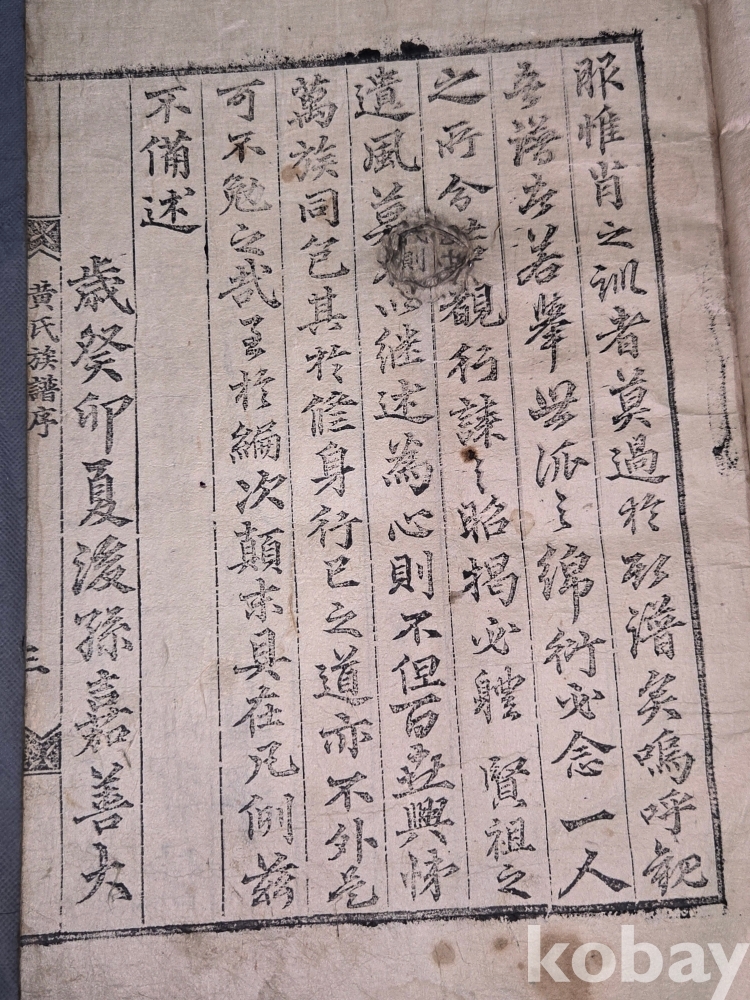 服惟肖之訓者莫過於玆譜矣嗚呼觀
吾譜者若擧世派之綿衍必念一人
之所分 覩行誄之昭揭必軆 賢祖之
遺風莫 以継述為心則不但百世興悌
萬族同包其於修身行己之道亦不外是
可不勉之哉至於編次顛末具在凡例玆
不備述
歲癸卯夏後孫嘉善大
黃氏族譜序
三
kobay